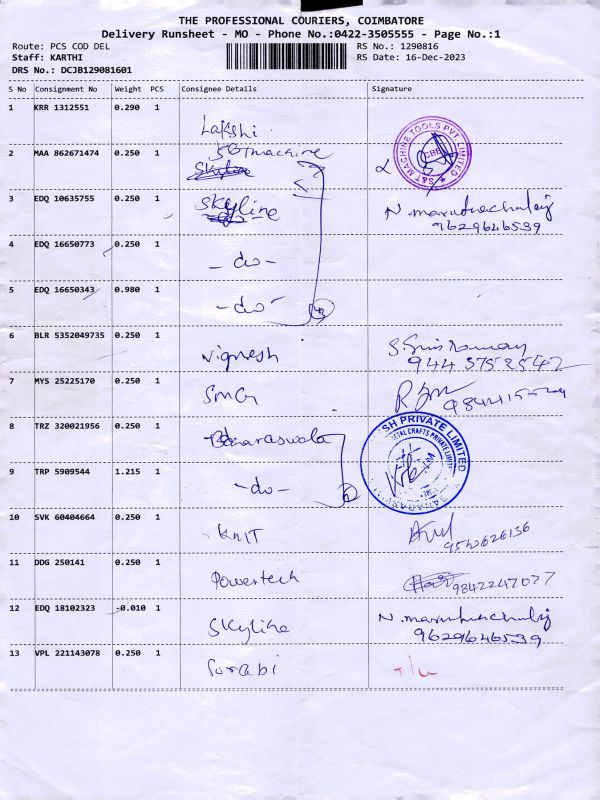 THE PROFESSIONAL COURIERS, COIMBATORE
Delivery Runsheet - MO - Phone No.:0422-3505555 - Page No.:1
Route: PCS COD DEL RS No.: 1290816
Staff: KARTHI RS Date: 16-Dec-2023
DRS No.: DCJB129081601
S No Consignment No Weight PCS Consignee Details Signature
1 KRR 1312551 0.290 1 Lakshi
2 MAA 862671474 0.250 1 S&T machine
Skyline
S&T MACHINE TOOLS PVT. LIMITED
CBE
3 EDQ 10635755 0.250 1 Skyline N. maruthachalaj
9629646539
4 EDQ 16650773 0.250 1 - do -
5 EDQ 16650343 0.980 1 - do -
6 BLR 5352049735 0.250 1 Vignesh
7 MYS 25225170 0.250 1 SMG
8 TRZ 320021956 0.250 1
SH PRIVATE LIMITED
METAL CRAFTS PRIVATE LIMITED
9 TRP 5909544 1.215 1 - do -
10 SVK 60404664 0.250 1 KNIT
11 DDG 250141 0.250 1 Powertech 9842247077
12 EDQ 18102323 -0.010 1 Skyline N. maruthachalaj
9629646539
13 VPL 221143078 0.250 1 Surabi